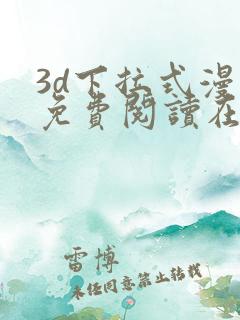 3d下拉式漫
免費閱讀在
雷博
未经同意禁止转载